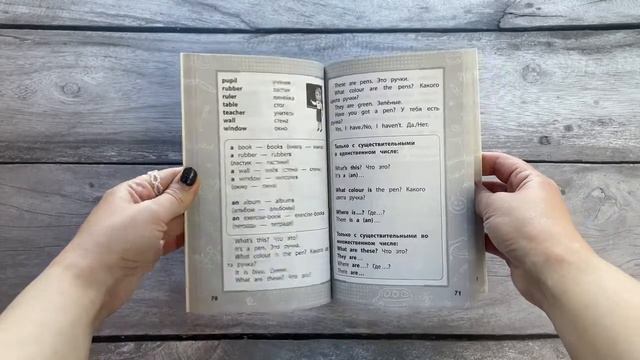 pupil ученик
rubber ластик
ruler линейка
table стол
teacher учитель
wall стена
window окно
a book — books (книга — книги)
a rubber — rubbers
(ластик — ластики)
a wall — walls (стена — стены)
a window — windows
(окно — окна)
an album — albums
(альбом — альбомы)
an exercise-book — exercise-books
(тетрадь — тетради)
What's this? Что это?
It's a pen. Это ручка.
What colour is the pen? Какого цве-
та ручка?
It is blue. Синяя.
What are these? Что это?
70
These are pens. Это ручки.
What colour are the pens? Какого
цвета ручки?
They are green. Зелёные.
Have you got a pen? У тебя есть
ручка?
Yes, I have./No, I haven't. Да./Нет.
Только с существительными
в единственном числе:
What's this? Что это?
It's a (an)...
What colour is the pen? Какого
цвета ручка?
Where is...? Где...?
There is a (an)...
Только с существительными во
множественном числе:
What are these? Что это?
They are...
Where are...? Где...?
There are...
71